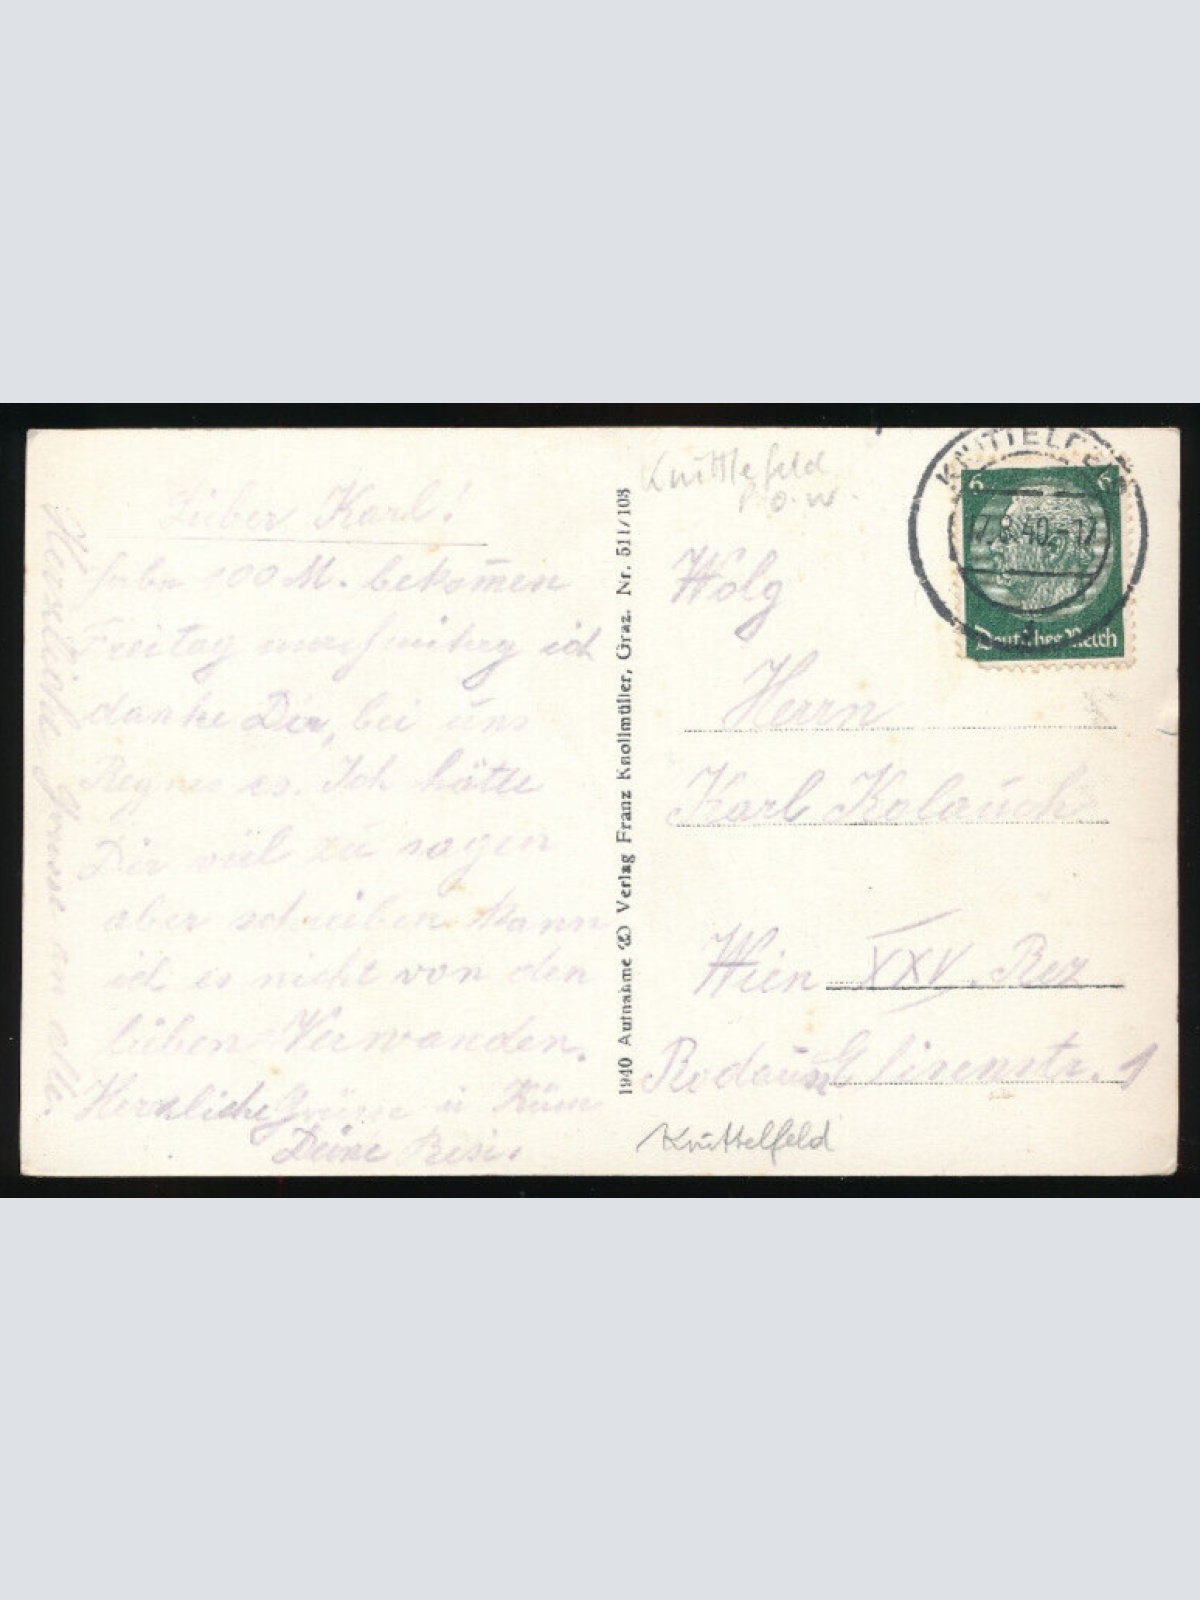 Lieber Karl!
habe 100 M. bekom̄en
Freitag ich
danke Dir, bei uns
Regnes es. Ich hätte
Dir viel zu sagen
aber schreiben kann
ich es nicht von den
lieben Verwanden.
Herzliche Grüsse u
Deine Resi
Herzliche Grüsse an alle.
1940 Aufnahme & Verlag Franz Knollmüller, Graz. Nr. 511/108
Knittlefeld
P.O.W.
KNITTELFELD
7.8.40-17
6 6
Deutsches Reich
Wolg
Herrn
Karl Kolauch
Wien XXV. Bez
Rodaun Elisenstr. 1
Knittelfeld